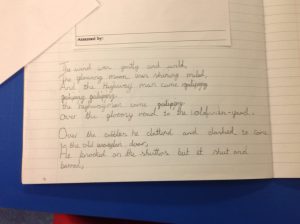 Assessed by:
The wind was gusty and wild,
The glowing moon was shining
And the highway man came galloping
galloping galloping.
the highwayman came galloping
Over the glossy road to the
Over the cobbles he clattered and clashed to
to the old wooden door,
He knocked on the shutters but it shut and
barred,